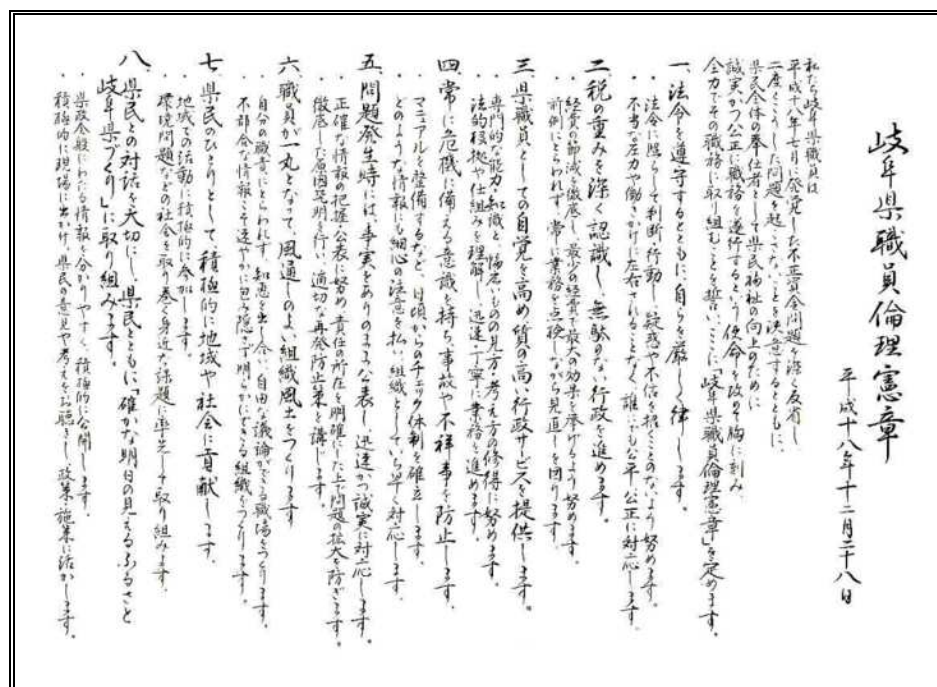 岐阜県職員倫理憲章
平成十八年十二月二十八日
私たち岐阜県職員は
平成十八年七月に発覚した不正資金問題を深く反省し
二度とこうした問題を起こさないことを決意するとともに、
県民全体の奉仕者として県民福祉の向上のために
誠実かつ公正に職務を遂行するという使命を改めて胸に刻み
全力でその職務に取り組むことを誓い、ここに「岐阜県職員倫理憲章」を定めます。
一、法令を遵守するとともに自らを厳しく律します。
・法令に照らして判断・行動し、疑惑や不信を招くことのないよう努めます。
・不当な圧力や働きかけに左右されることなく、誰にでも公平・公正に対応します。
二、税の重みを深く認識し、無駄のない行政を進めます。
・経費の節減を徹底し、最少の経費で最大の効果を挙げるよう努めます。
・前例にとらわれず、常に業務を点検しながら見直しを図ります。
三、県職員としての自覚を高め、質の高い行政サービスを提供します。
・専門的な能力・知識と、幅広いものの見方・考え方の修得に努めます。
・法的根拠や仕組みを理解し、迅速・丁寧に業務を進めます。
四、常に危機に備える意識を持ち、事故や不祥事を防止します。
・マニュアルを整備するなど、日頃からのチェック体制を確立します。
・どのような情報にも細心の注意を払い、組織としていち早く対応します。
五、問題発生時には、事実をありのままに公表し、迅速かつ誠実に対応します。
・正確な情報の把握と公表に努め、責任の所在を明確にした上で問題の拡大を防ぎます。
・徹底した原因究明を行い、適切な再発防止策を講じます。
六、職員が一丸となって、風通しのよい組織風土をつくります。
・自分の職責にとらわれず、知恵を出し合い、自由な議論ができる職場をつくります。
・不都合な情報こそ速やかに包み隠さず明らかにできる組織をつくります。
七、県民のひとりとして、積極的に地域や社会に貢献します。
・地域での活動に積極的に参加します。
・環境問題などの社会を取り巻く身近な課題に率先して取り組みます。
八、県民との対話を大切にし、県民とともに、「確かな明日の見えるふるさと
岐阜県づくり」に取り組みます。
・県政全般にわたる情報を分かりやすく、積極的に公開します。
・積極的に現場に出かけ、県民の意見や考えをお聴きし、政策・施策に活かします。